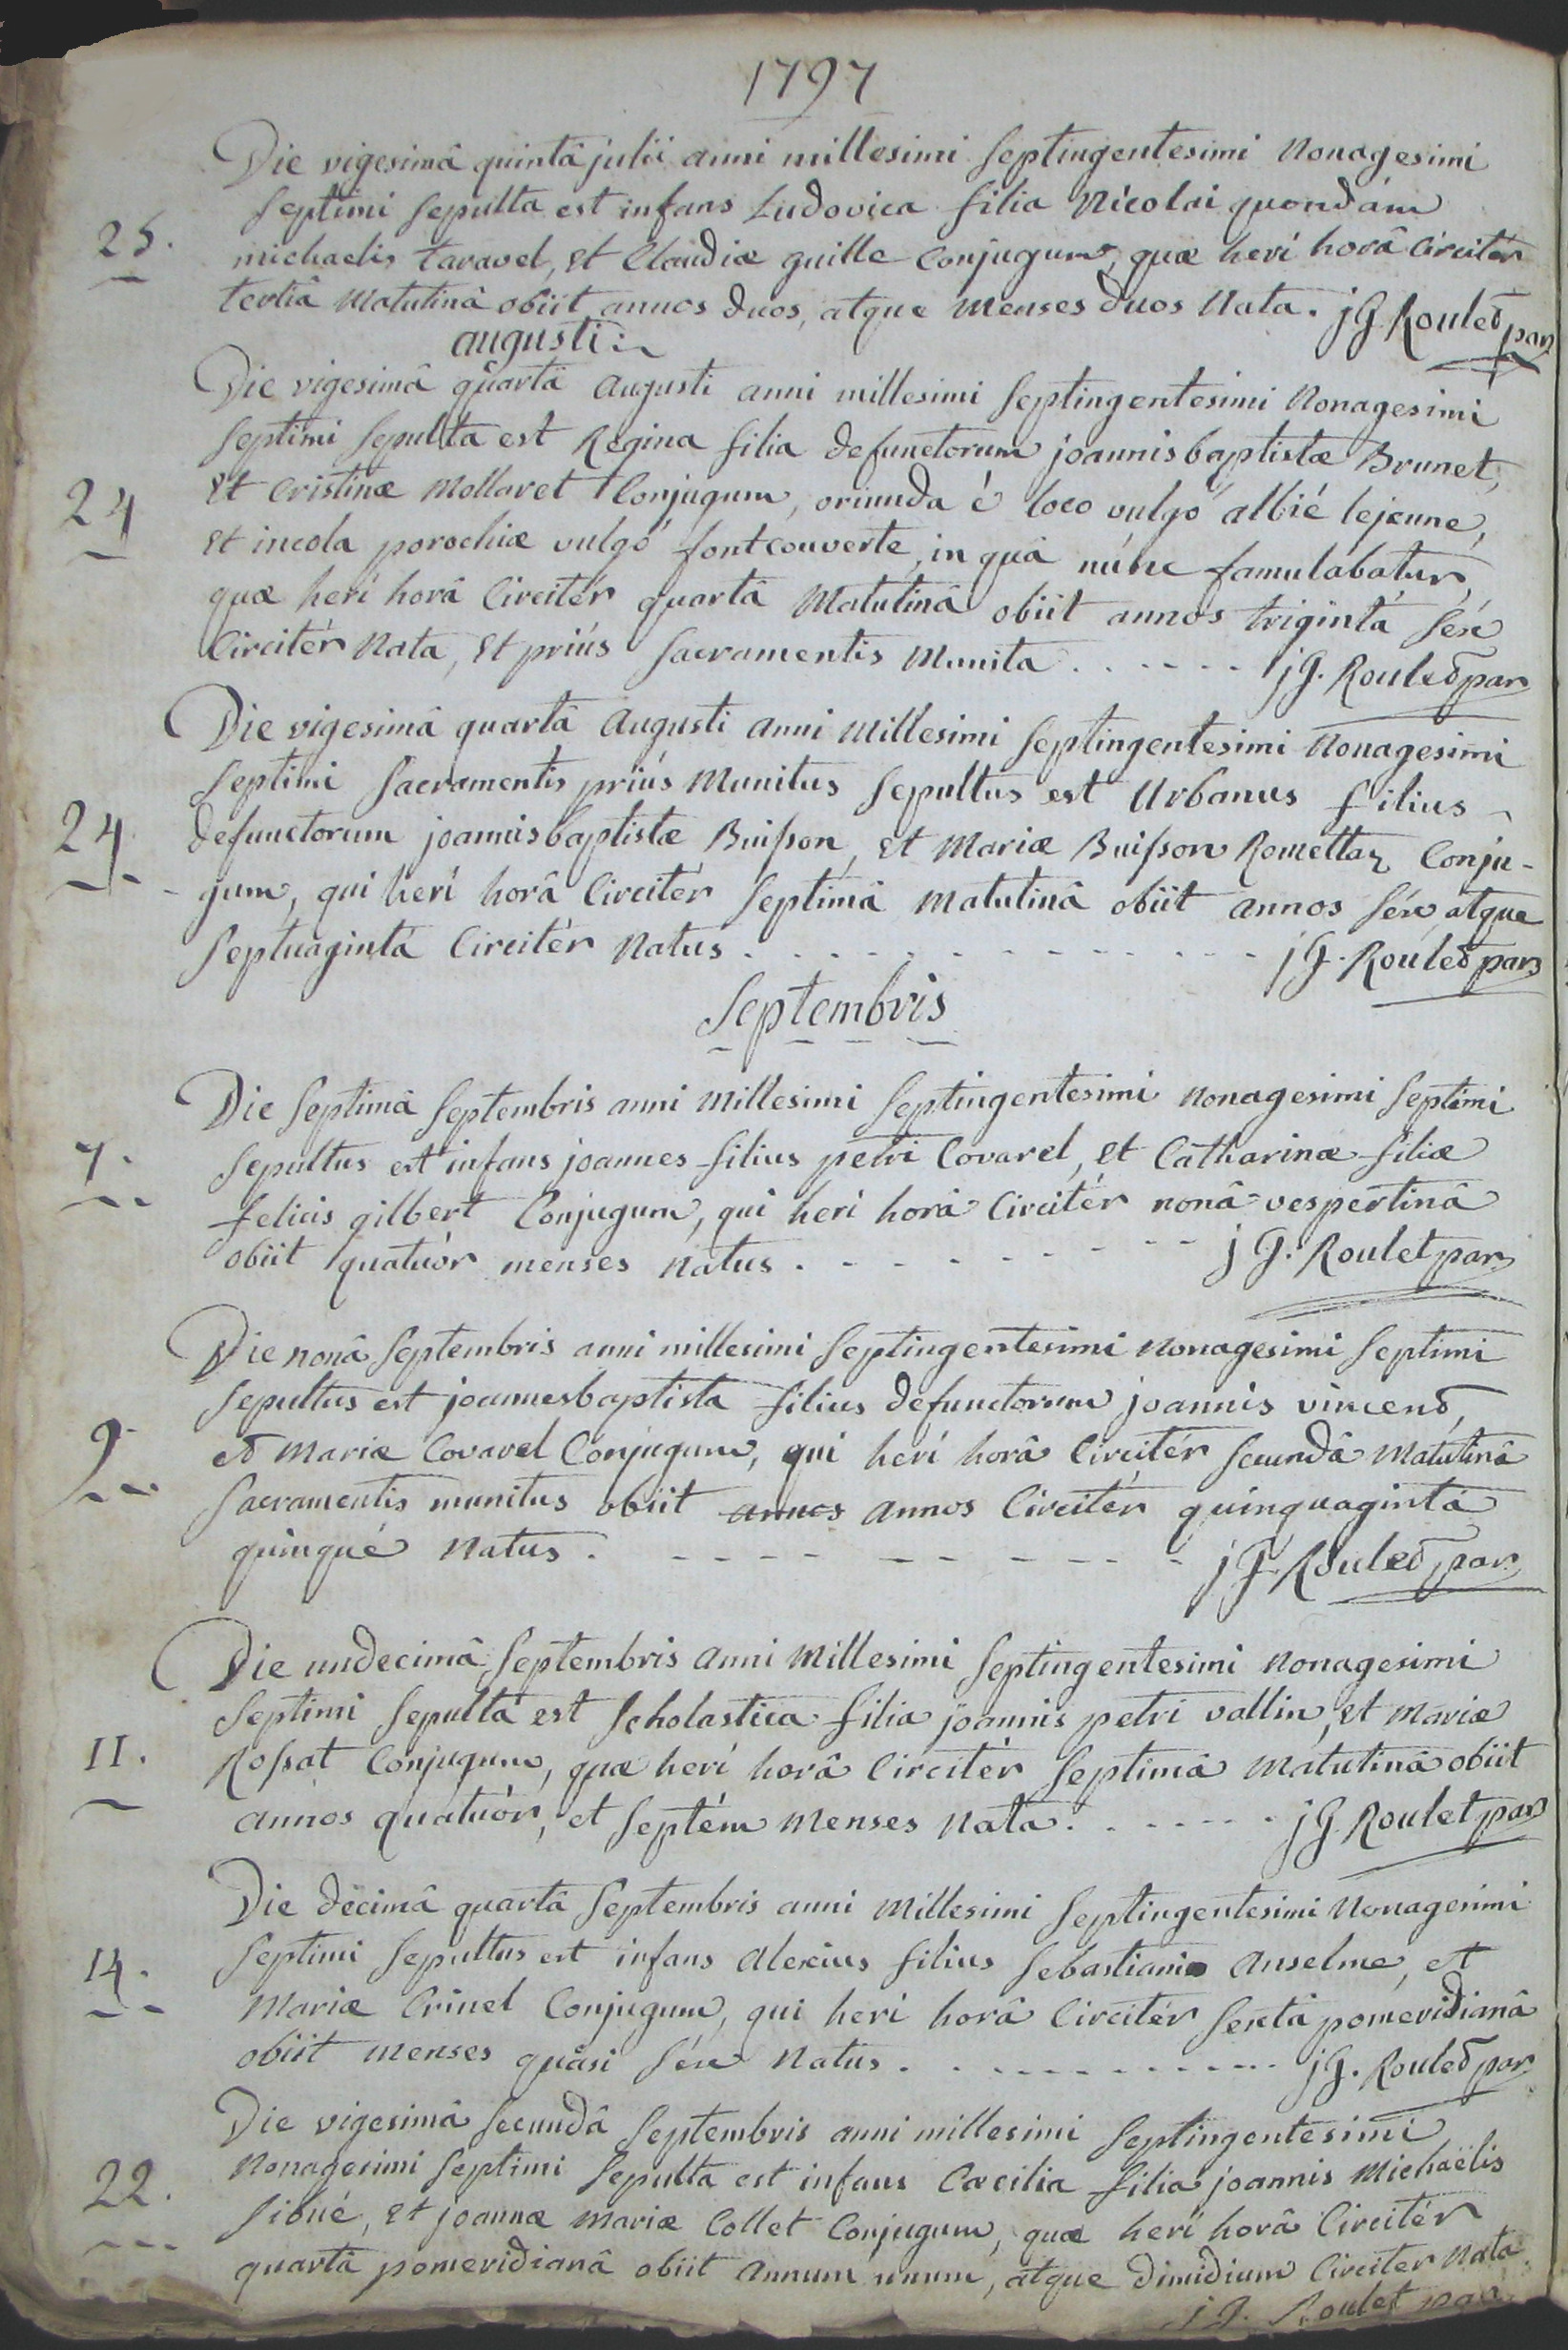 1797
Die vigesimâ quintâ julii anni millesimi septingentesimi nonagesimi
septimi sepulta est infans Ludovica filia Nicolai quondám
25.
michaelis taravel, et Claudiæ guille Conjugum, quæ heri horâ Circitér
tertiâ Matutinâ obiit annos duos, atque menses duos Nata. jG Rouled par
augusti
Die vigesimâ quartâ augusti anni millesimi septingentesimi Nonagesimi
septimi sepulta est Regina filia defunctorum joannisbaptistæ Brunet,
24
et Cristinæ Mollaret Conjugum, oriunda é loco vulgó albié lejeune,
et incola parochiæ vulgó fontcouverte, in quâ núnc famulabatur,
quæ heri horâ Circitér quartâ Matutinâ obiit annos trigintá séx
Circitér Nata, et priús sacramentis Munita . . . . . . jG. Rouled par
Die vigesimâ quartâ augusti anni Millesimi septingentesimi Nonagesimi
septimi sacramentis priús Munitus sepultus est Urbanus filius
24.
defunctorum joannisbaptistæ Buisson, et Mariæ Buisson Romettaz Conju-
gum, qui heri horâ Circitér septimâ Matutinâ obiit annos séx, atque
septuagintá Circitér Natus . . . . . . . . . . . jG. Rouled par
Septembris
Die septimâ septembris anni Millesimi septingentesimi nonagesimi septimi
7.
sepultus est infans joannes filius petri Covarel, et Catharinæ filiæ
felicis gilbert Conjugum, qui heri horâ Circitér nonâ vespertinâ
obiit quatuór menses natus . . . . . . . . . jG. Roulet par
Die nonâ septembris anni millesimi septingentesimi nonagesimi septimi
sepultus est joannesbaptista filius defunctorum joannis vincend,
9
ed Mariæ Covarel Conjugum, qui heri horâ Circitér secundâ Matutinâ
sacramentis munitus obiit annos annos Circitér quinquagintá
quinqué Natus . . . . . . . . . . . jG Rouled par
Die undecimâ septembris anni Millesimi septingentesimi nonagesimi
septimi sepulta est Scholastica filia joannis petri vallin, et Mariæ
11.
Rossat Conjugum, quæ heri horâ Circitér septimâ Matutinâ obiit
annos quatuór, et septém Menses Nata . . . . . . . jG Roulet par
Die decimâ quartâ septembris anni Millesimi septingentesimi Nonagesimi
septimi sepultus est infans alexius filius sebastiani anselme, et
14.
Mariæ Crinel Conjugum, qui heri horâ Circitér sextâ pomeridianâ
obiit menses quasi séx Natus . . . . . . . . . . jG. Rouled par
Die vigesimâ secundâ septembris anni millesimi septingentesimi
Nonagesimi septimi sepulta est infans Cæcilia filia joannis Michaëlis
22.
sibué, et joannæ Mariæ Collet Conjugum, quæ heri horâ Circitér
quartâ pomeridianâ obiit annum unum, atque dimidium Circiter Nata
jG. Roulet par